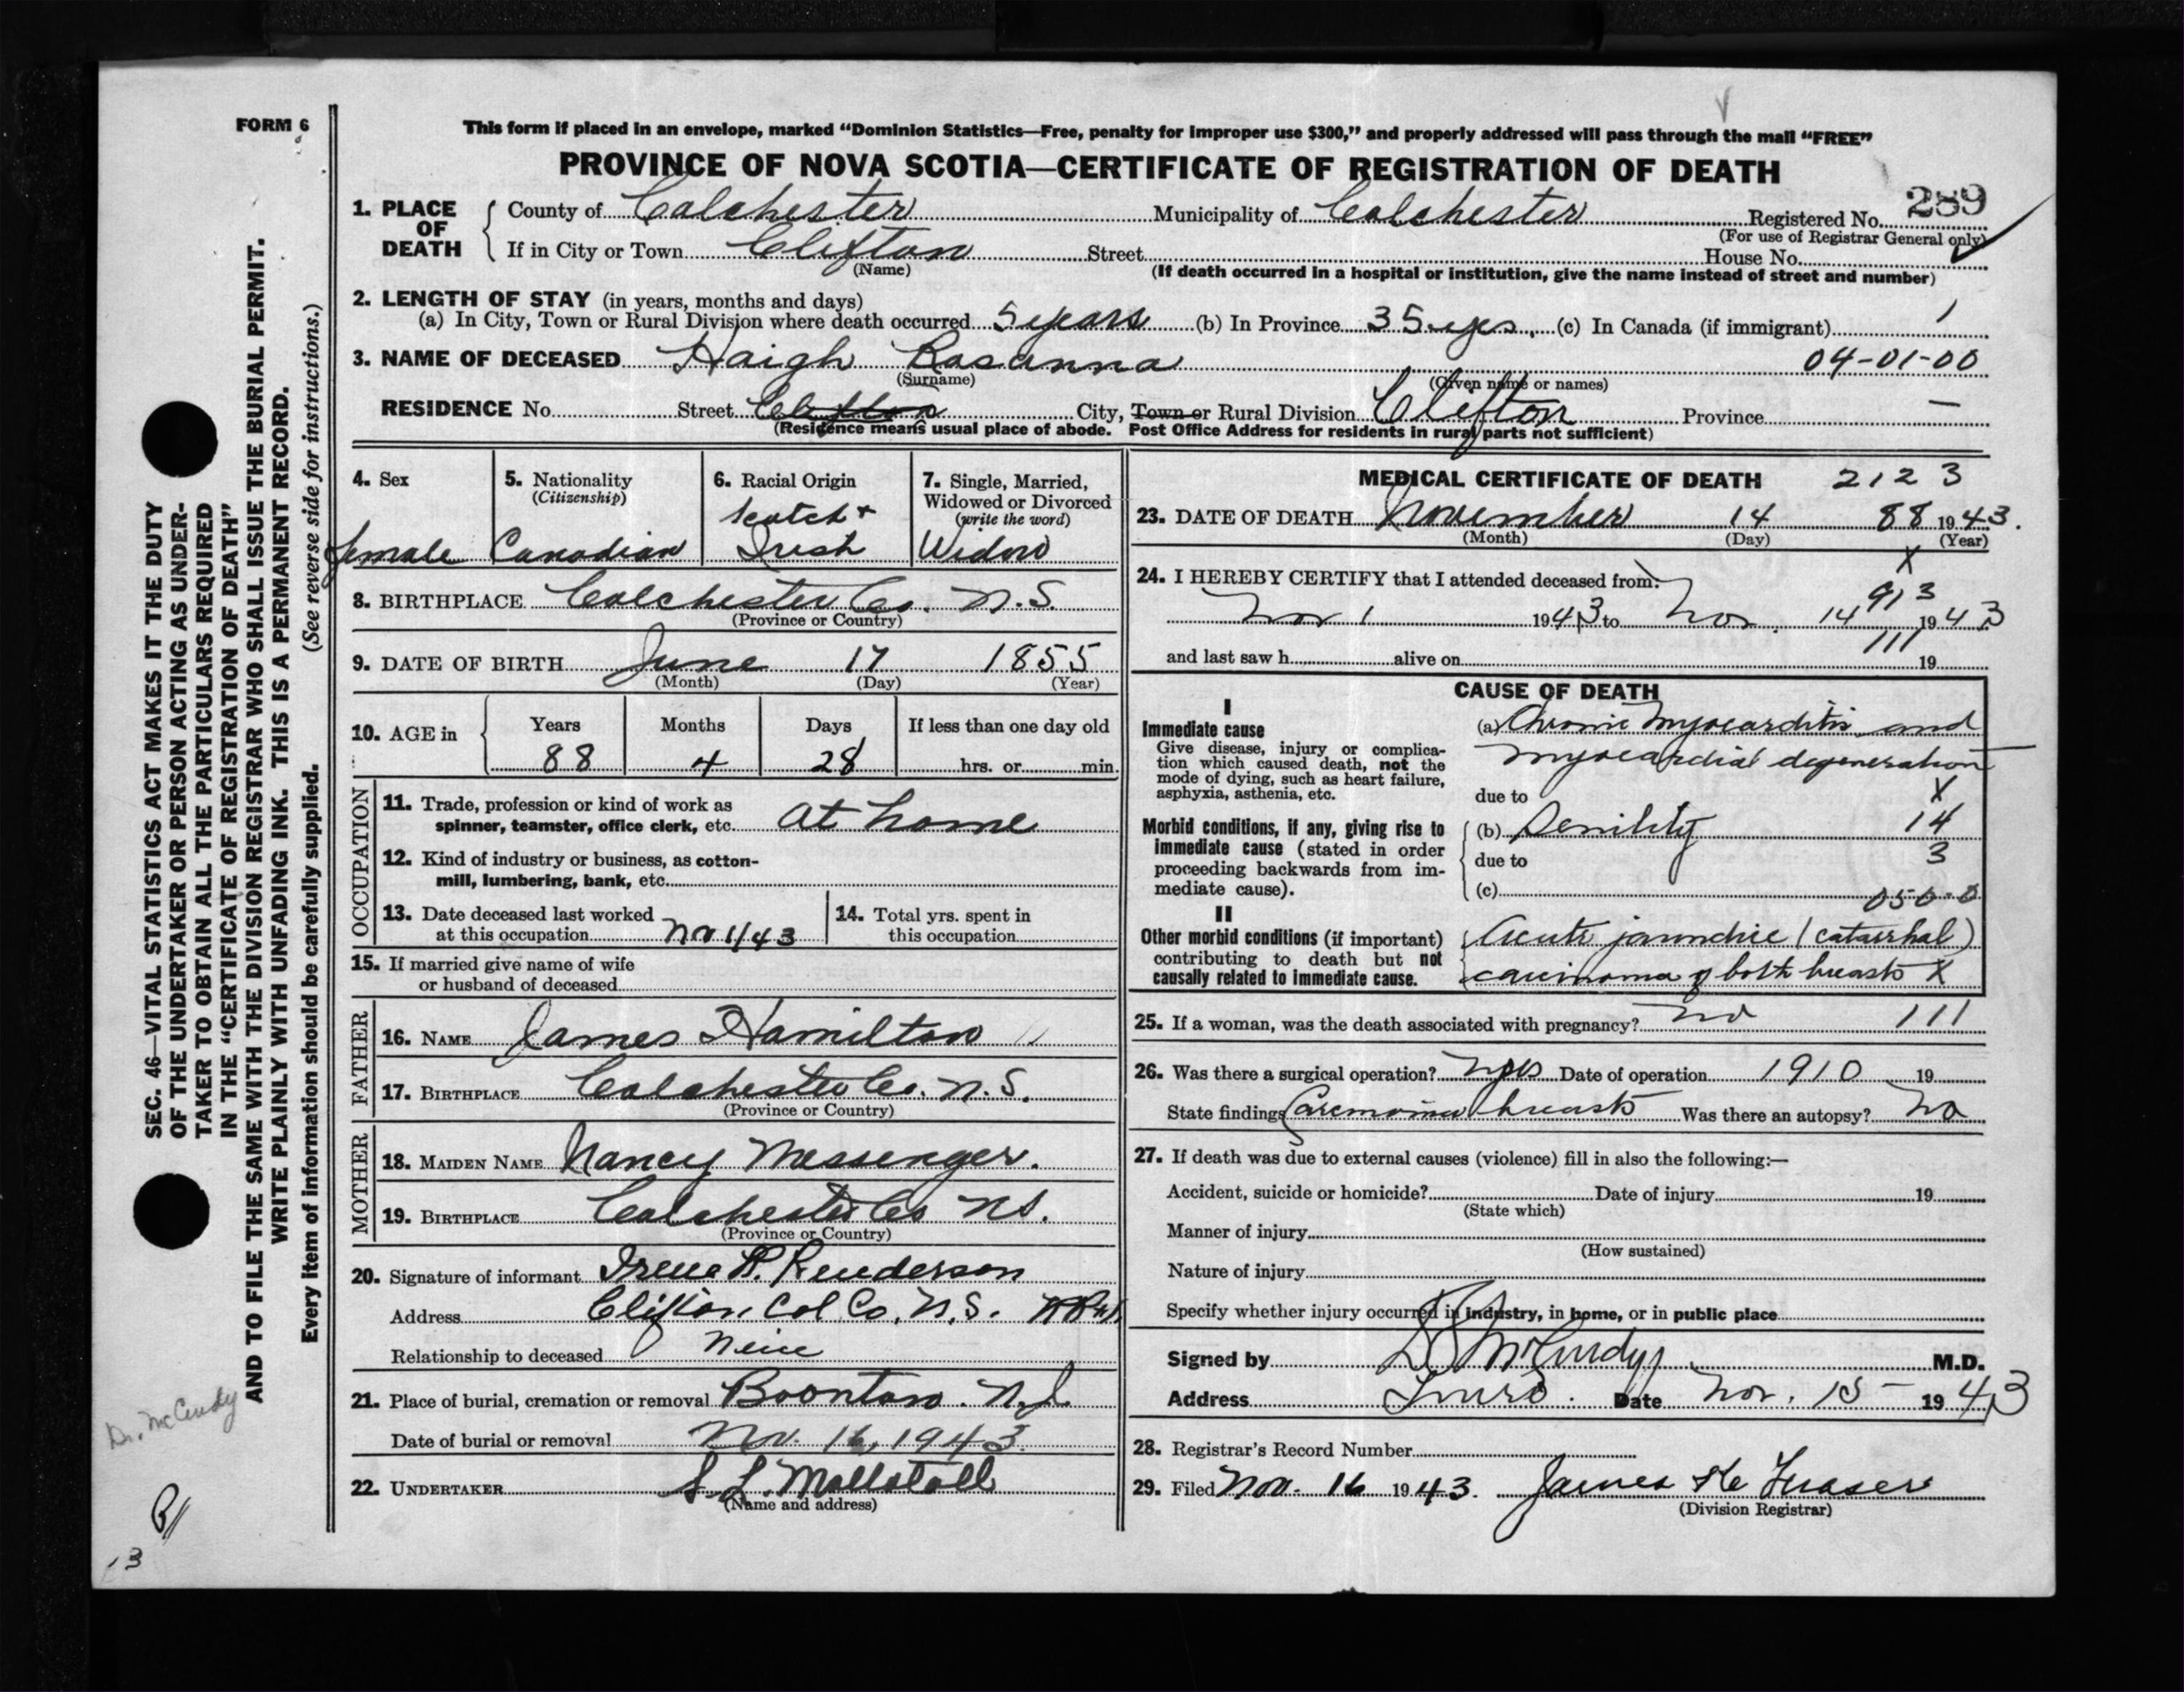 FORM 6
This form if placed in an envelope, marked “Dominion Statistics—Free, penalty for improper use $300,” and properly addressed will pass through the mail “FREE”
PROVINCE OF NOVA SCOTIA—CERTIFICATE OF REGISTRATION OF DEATH
1. PLACE OF DEATH
County of Colchester Municipality of Colchester Registered No. 289
(For use of Registrar General only)
If in City or Town Clifton Street House No.
(Name) (If death occurred in a hospital or institution, give the name instead of street and number)
2. LENGTH OF STAY (in years, months and days)
(a) In City, Town or Rural Division where death occurred 5 years (b) In Province 35 yrs. (c) In Canada (if immigrant) 1
3. NAME OF DECEASED Haigh Rosanna 04-01-00
(Surname) (Given name or names)
RESIDENCE No. Street Clifton City, Town or Rural Division Clifton Province —
(Residence means usual place of abode. Post Office Address for residents in rural parts not sufficient)
4. Sex
female
5. Nationality
(Citizenship)
Canadian
6. Racial Origin
Scotch +
Irish
7. Single, Married,
Widowed or Divorced
(write the word)
Widow
8. BIRTHPLACE Colchester Co. N.S.
(Province or Country)
9. DATE OF BIRTH June 17 1855
(Month) (Day) (Year)
10. AGE in
Years Months Days If less than one day old
88 4 28 hrs. or min
OCCUPATION
11. Trade, profession or kind of work as
spinner, teamster, office clerk, etc. at home
12. Kind of industry or business, as cotton-
mill, lumbering, bank, etc.
13. Date deceased last worked
at this occupation Nov 1/43
14. Total yrs. spent in
this occupation
15. If married give name of wife
or husband of deceased
FATHER
16. NAME James Hamilton
17. BIRTHPLACE Colchester Co. N.S.
(Province or Country)
MOTHER
18. MAIDEN NAME Nancy Messenger.
19. BIRTHPLACE Colchester Co NS.
(Province or Country)
20. Signature of informant Irene
Address Clifton, Col Co. N.S.
Relationship to deceased Neice
21. Place of burial, cremation or removal Boonton. N.J
Date of burial or removal Nov. 16, 1943.
22. UNDERTAKER S. L.
(Name and address)
MEDICAL CERTIFICATE OF DEATH 2123
23. DATE OF DEATH November 14 88 1943.
(Month) (Day) (Year)
X
24. I HEREBY CERTIFY that I attended deceased from:
913
Nov 1 1943 to Nov. 14 1943
111
and last saw h alive on 19
CAUSE OF DEATH
I
Immediate cause
Give disease, injury or complica-
tion which caused death, not the
mode of dying, such as heart failure,
asphyxia, asthenia, etc.
(a) Chronic Myocarditis and
myocardial degeneration
due to X
Morbid conditions, if any, giving rise to
immediate cause (stated in order
proceeding backwards from im-
mediate cause).
(b) Senility 14
due to 3
(c) 050-0
II
Other morbid conditions (if important)
contributing to death but not
causally related to immediate cause.
Acute jaundice (catarrhal)
carcinoma of both breasts X
25. If a woman, was the death associated with pregnancy? no 111
26. Was there a surgical operation? yes Date of operation 1910 19
State findings breasts Was there an autopsy? No
27. If death was due to external causes (violence) fill in also the following:—
Accident, suicide or homicide? Date of injury 19
(State which)
Manner of injury
(How sustained)
Nature of injury
Specify whether injury occurred in industry, in home, or in public place
Signed by McCurdy M.D.
Address Truro. Date Nov. 15 - 1943
28. Registrar’s Record Number
29. Filed Nov. 16 1943. James Fraser
(Division Registrar)
SEC. 46—VITAL STATISTICS ACT MAKES IT THE DUTY
OF THE UNDERTAKER OR PERSON ACTING AS UNDER-
TAKER TO OBTAIN ALL THE PARTICULARS REQUIRED
IN THE “CERTIFICATE OF REGISTRATION OF DEATH”
AND TO FILE THE SAME WITH THE DIVISION REGISTRAR WHO SHALL ISSUE THE BURIAL PERMIT.
WRITE PLAINLY WITH UNFADING INK. THIS IS A PERMANENT RECORD.
Every item of information should be carefully supplied. (See reverse side for instructions.)
Dr. McCurdy
13